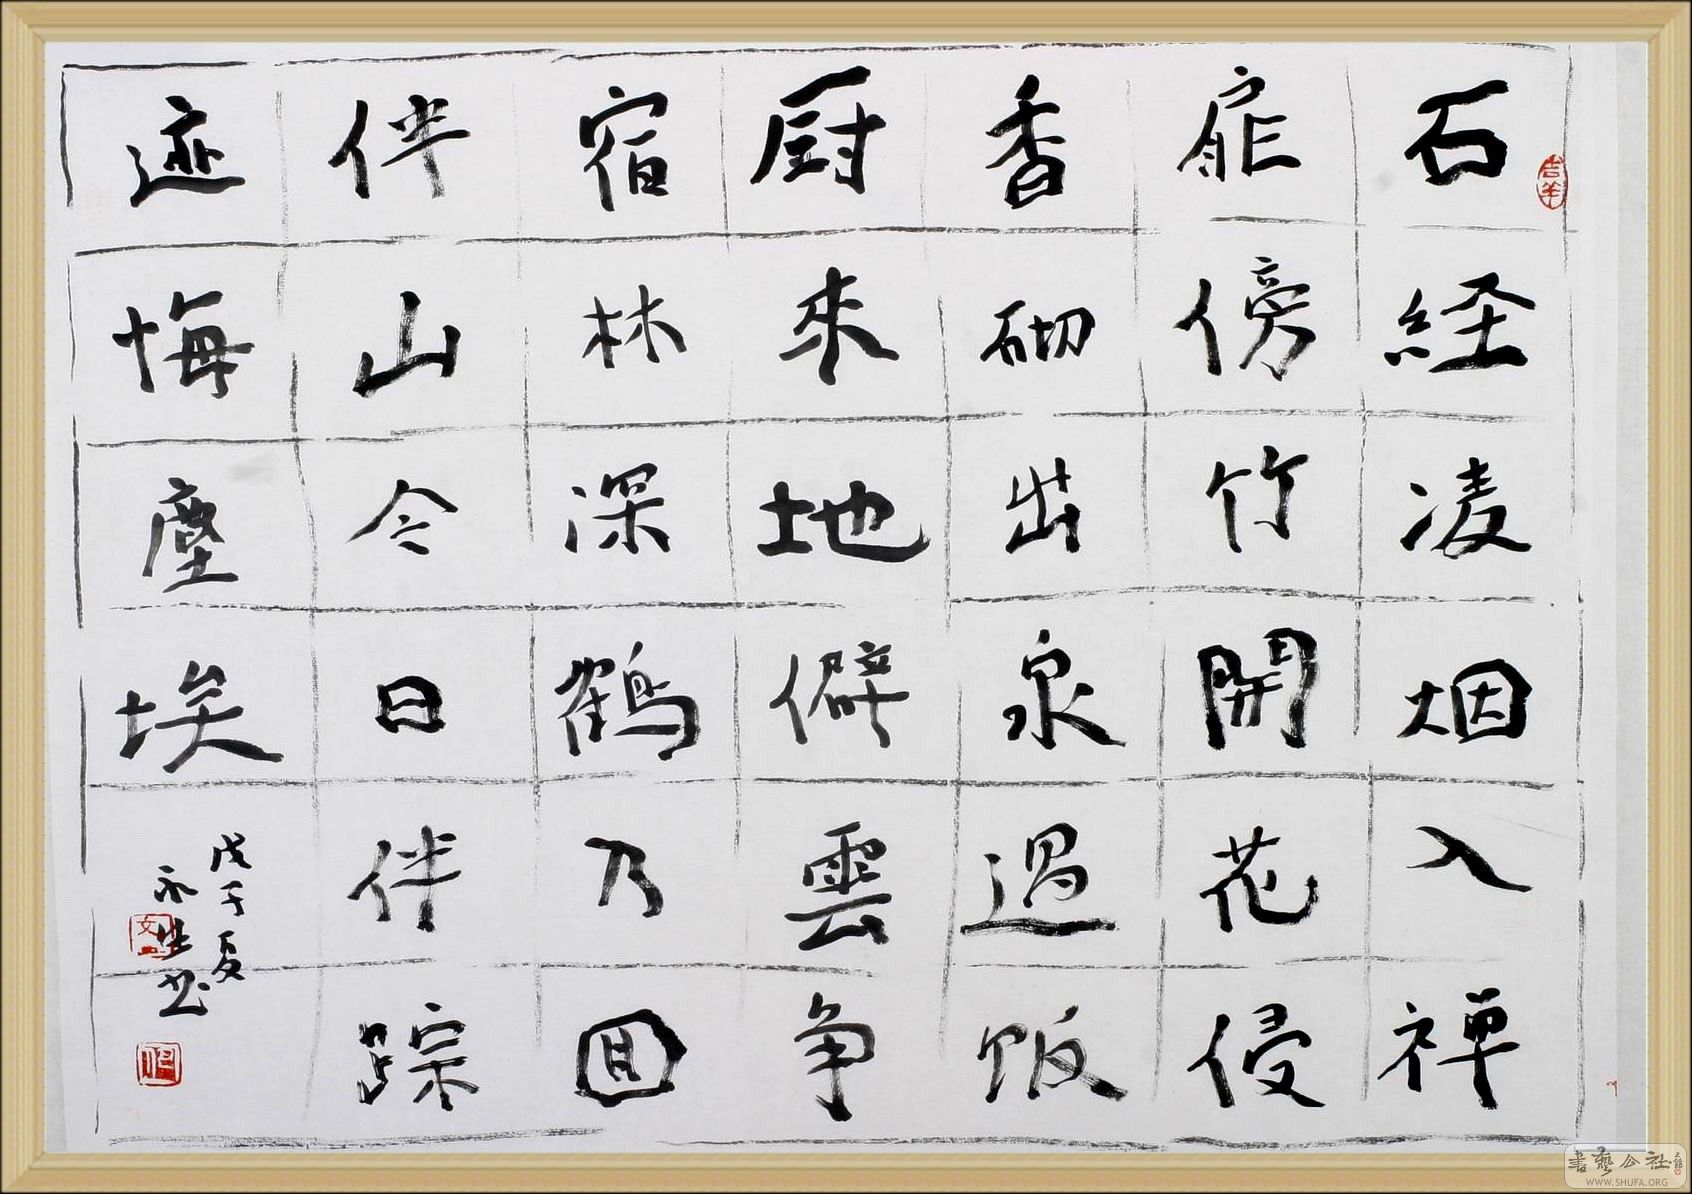 石経凌烟入禅
扉傍竹開花侵
香砌出泉過飯
厨来地僻雲争
宿林深鶴乃回
伴山今日伴踪
迹悔塵埃
戊子夏
永生书
吉羊
書藝公社
WWW.SHUFA.ORG